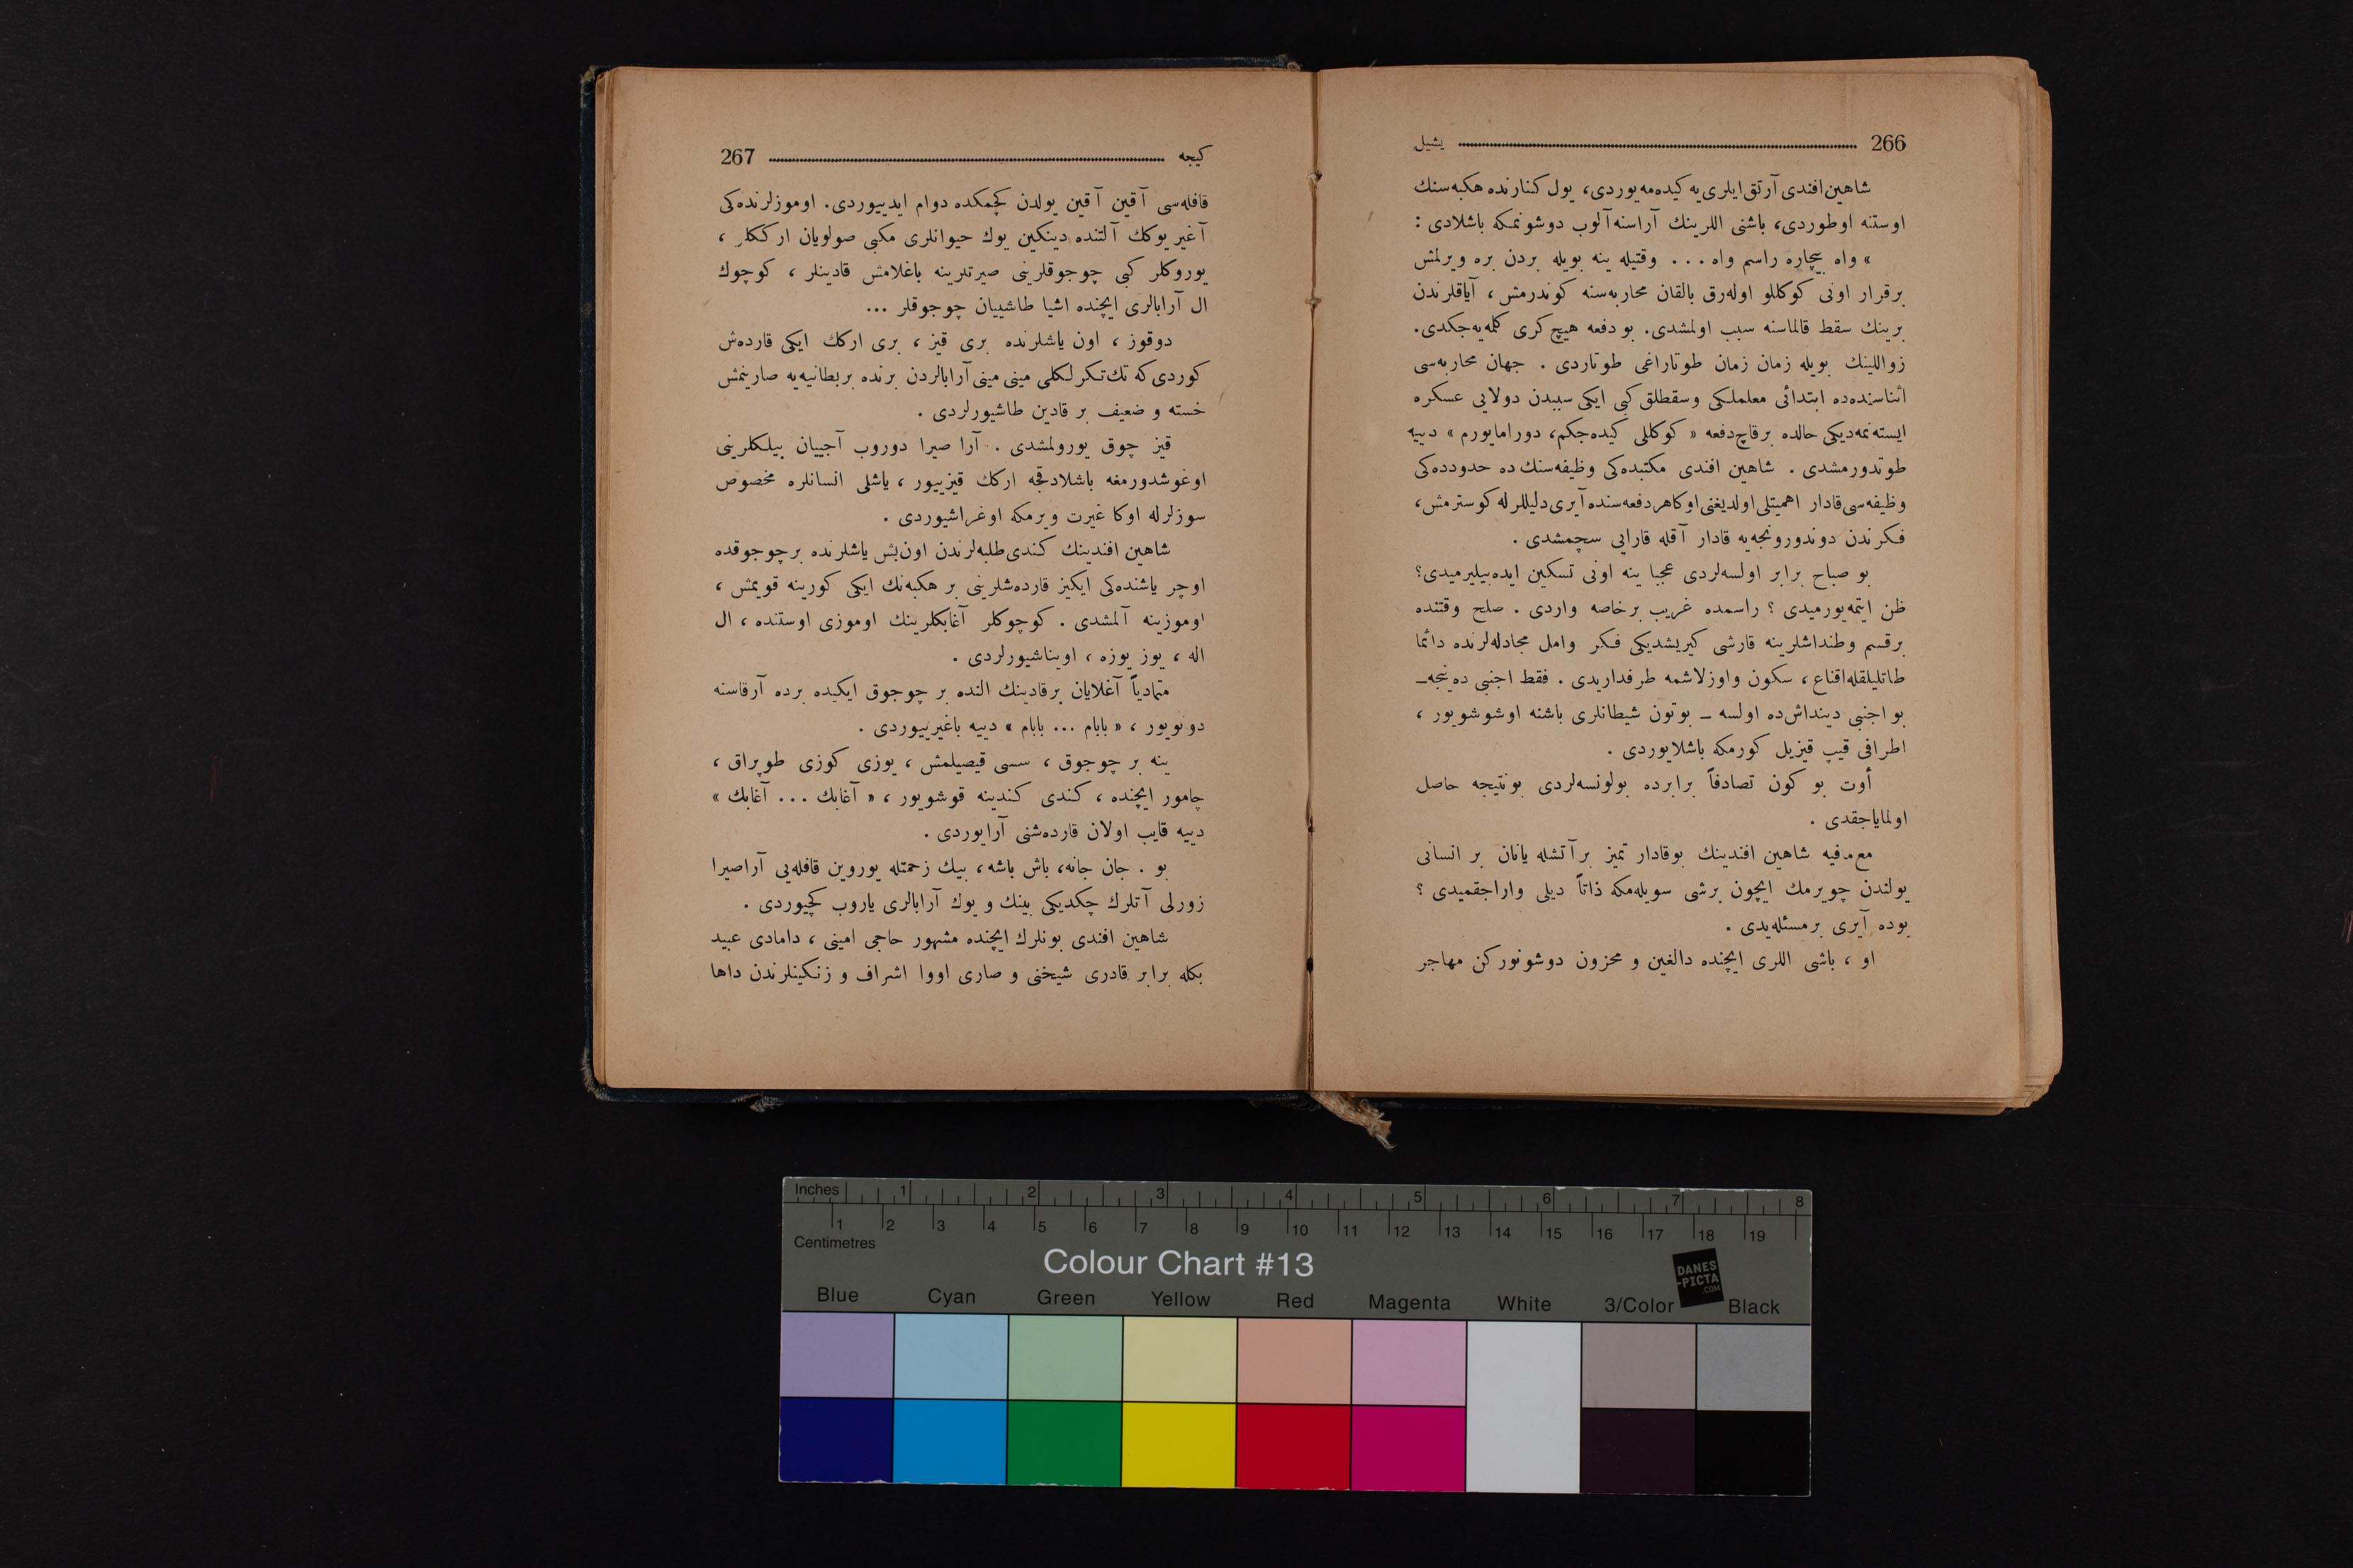 266 يشيل
شاهين افندى آرتق ايلرى‌يه كيده‌مه‌يوردى، يول كنارنده هكبه‌سنك
اوستنه اوطوردى، باشنى اللرينك آراسنه آلوب دوشونمكه باشلادى :
» واه بيچاره راسم واه ... وقتيله ينه بويله بردن بره ويرلمش
برقرار اونى كوكللو اوله‌رق بالقان محاربه‌سنه كوندرمش ، آياقلرندن
برينك سقط قالماسنه سبب اولمشدى. بو دفعه هيچ كرى كلمه‌يه‌جكدى.
زواللينك بويله زمان زمان طوتاراغى طوتاردى . جهان محاربه‌سى
اثناسنده‌ده ابتدائى معلملكى وسقطلق كبى ايكى سببدن دولايى عسكره
ايسته‌نمه‌ديكى حالده برقاچ دفعه « كوكللى كيده‌جكم، دورامايورم » دييه
طوتدورمشدى . شاهين افندى مكتبده‌كى وظيفه‌سنك ده حدودده‌كى
وظيفه‌سى قادار اهميتلى اولديغنى اوكا هر دفعه‌سنده آيرى دليللرله كوسترمش،
فكرندن دوندورونجه‌يه قادار آقله قارايى سچمشدى .
بو صباح برابر اولسه‌لردى عجبا ينه اونى تسكين ايده‌بيليرميدى؟
ظن ايتمه‌يورميدى ؟ راسمده غريب برخاصه واردى . صلح وقتنده
برقسم وطنداشلرينه قارشى كيريشديكى فكر وامل مجادله‌لرنده دائما
طاتليلقله اقناع ، سكون واوزلاشمه طرفداريدى . فقط اجنبى ده‌ينجه ـ
بو اجنبى دينداش‌ده اولسه ـ بوتون شيطانلرى باشنه اوشوشويور ،
اطرافى قيپ قيزيل كورمكه باشلايوردى .
أوت بو كون تصادفاً برابرده بولونسه‌لردى بونتيجه حاصل
اولماياجقدى .
مع‌مافيه شاهين افندينك بوقادار تميز برآتشله يانان بر انسانى
يولندن چويرمك ايچون برشى سويله‌مكه ذاتاً ديلى واراجقميدى ؟
بوده آيرى برمسئله‌يدى .
او ، باشى اللرى ايچنده دالغين و محزون دوشونوركن مهاجر
كيجه 267
قافله‌سى آقين آقين يولدن كچمكده دوام ايدييوردى. اوموزلرنده‌كى
آغير يوكك آلتنده دينكين يوك حيوانلرى مكبى صولويان اركككلر ،
يوروكلر كبى چوجوقلرينى صيرتلرينه باغلامش قادينلر ، كوچوك
ال آرابالرى ايچنده اشيا طاشييان چوجوقلر ...
دوقوز ، اون ياشلرنده برى قيز ، برى اركك ايكى قارده‌ش
كوردى كه تك تكرلكلى مينى مينى آرابالردن برنده بربطانيه‌يه صارينمش
خسته و ضعيف بر قادين طاشيورلردى .
قيز چوق يورولمشدى . آرا صيرا دوروب آجييان بيلكلرينى
اوغوشدورمغه باشلادقجه اركك قيزييور ، ياشلى انسانلره مخصوص
سوزلرله اوكا غيرت ويرمكه اوغراشيوردى .
شاهين افندينك كندى طلبه‌لرندن اون‌بش ياشلرنده برچوجوقده
اوچر ياشنده‌كى ايكيز قارده‌شلرينى بر هكبه‌نك ايكى كورينه قويمش ،
اوموزينه آلمشدى . كوچوكلر آغابكلرينك اوموزى اوستنده ، ال
اله ، يوز يوزه ، اويناشيورلردى .
متمادياً آغلايان برقادينك النده بر چوجوق ايكيده برده آرقاسنه
دونويور ، « بابام ... بابام » دييه باغيرييوردى .
ينه بر چوجوق ، سسى قيصيلمش ، يوزى كوزى طوپراق ،
چامور ايچنده ، كندى كندينه قوشويور ، « آغابك ... آغابك »
دييه قايب اولان قارده‌شنى آرايوردى .
بو . جان جانه، باش باشه ، بيك زحمتله يوروين قافله‌يى آراصيرا
زورلى آتلرك چكديكى بينك و يوك آرابالرى ياروب كچيوردى .
شاهين افندى بونلرك ايچنده مشهور حاجى امينى ، دامادى عبيد
بكله برابر قادرى شيخنى و صارى اووا اشراف و زنكينلرندن داها
Inches 1 2 3 4 5 6 7 8
1 2 3 4 5 6 7 8 9 10 11 12 13 14 15 16 17 18 19
Centimetres
Colour Chart #13
DANES
-PICTA
.COM
Blue Cyan Green Yellow Red Magenta White 3/Color Black